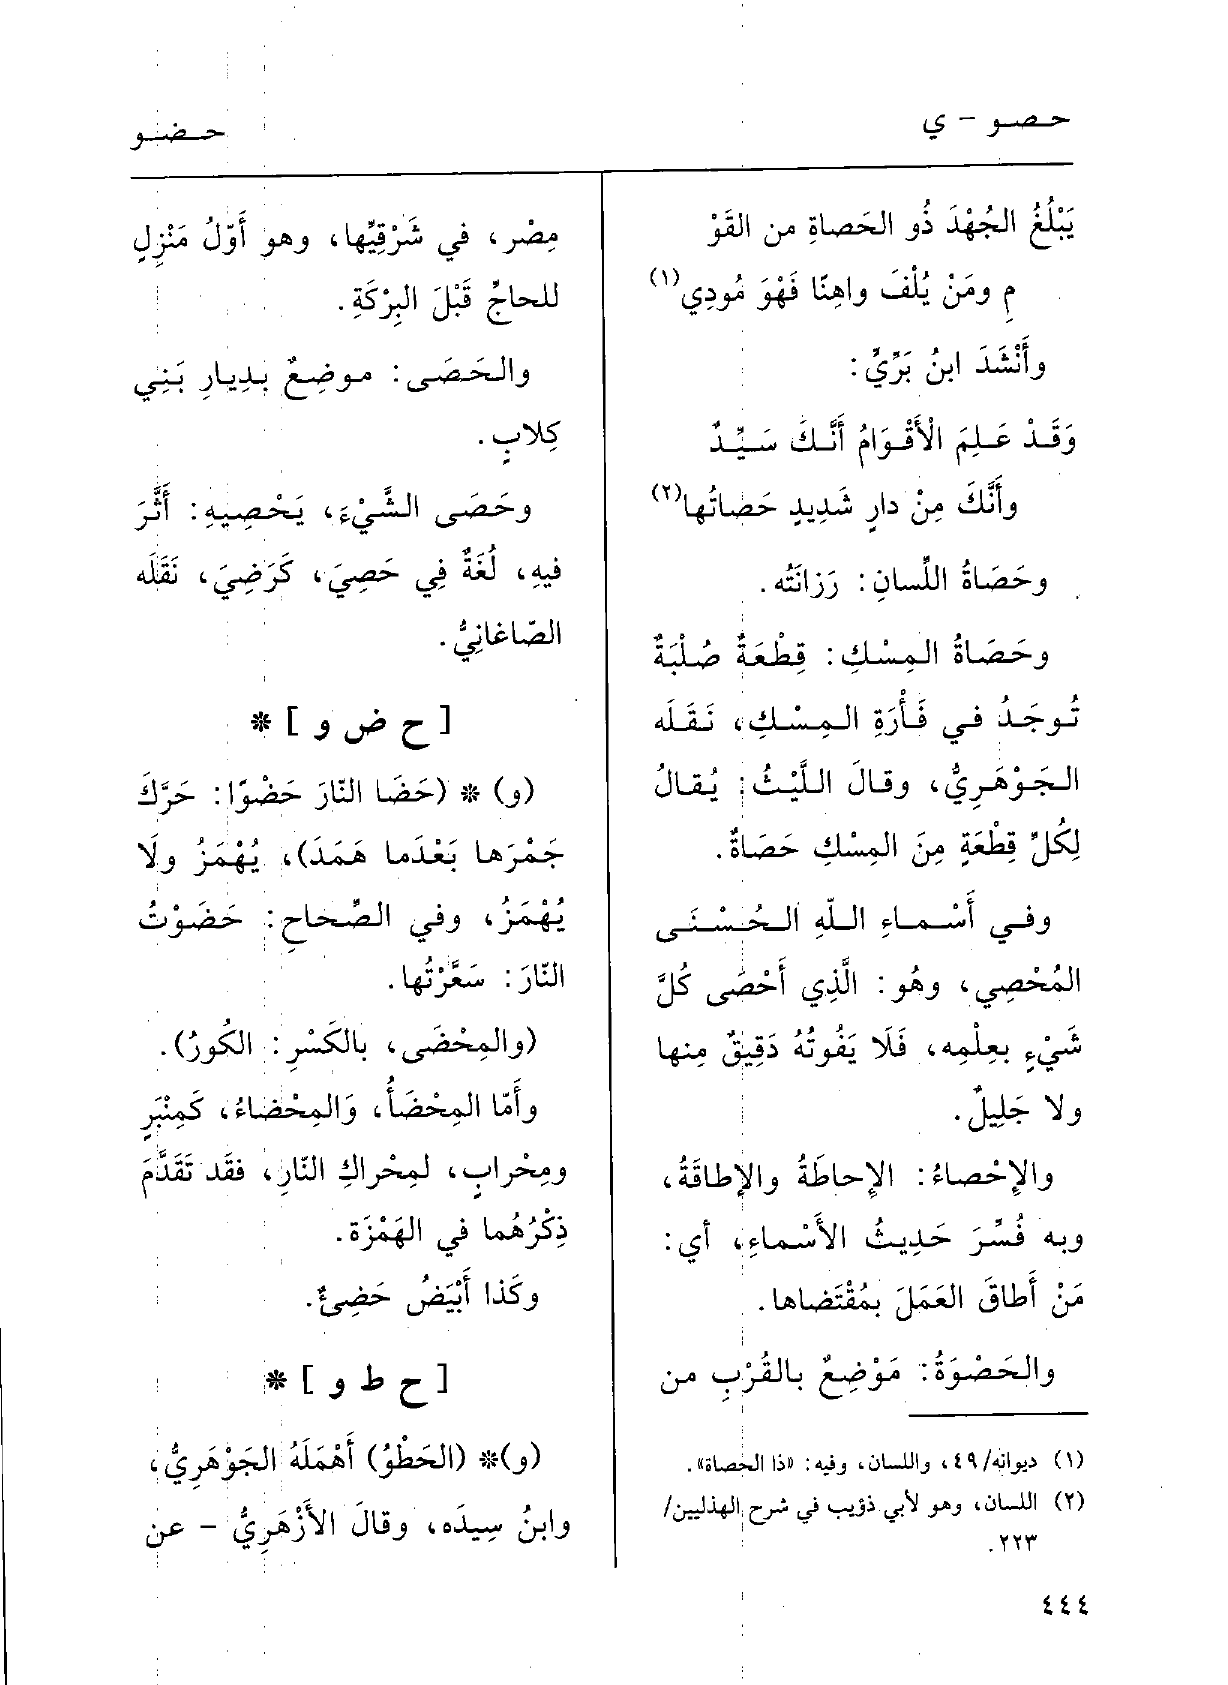 حـصـو - ي
حـضـو
يَبْلُغُ الجُهْدَ ذُو الحَصاةِ من القَوْ
مِ ومَنْ يُلْفَ واهِنًا فَهْوَ مُودِي(١)
وأَنْشَدَ ابنُ بَرِّيٍّ:
وَقَدْ عَلِمَ الْأَقْوَامُ أَنَّكَ سَيِّدٌ
وأَنَّكَ مِنْ دارٍ شَدِيدٍ حَصاتُها(٢)
وحَصَاةُ اللِّسانِ: رَزانَتُه.
وحَصَاةُ المِسْكِ: قِطْعَةٌ صُلْبَةٌ
تُوجَدُ في فَأْرَةِ المِسْكِ، نَقَلَه
الجَوْهَرِيُّ، وقالَ اللَّيْثُ: يُقالُ
لِكُلِّ قِطْعَةٍ مِنَ المِسْكِ حَصَاةٌ.
وفي أَسْماءِ اللّهِ الحُسْنَى
المُحْصِي، وهُو: الَّذِي أَحْصَى كُلَّ
شَيْءٍ بعِلْمِه، فَلَا يَفُوتُهُ دَقِيقٌ مِنها
ولا جَلِيلٌ.
والإِحْصاءُ: الإِحاطَةُ والإِطاقَةُ،
وبه فُسِّرَ حَدِيثُ الأَسْماءِ، أي:
مَنْ أَطاقَ العَمَلَ بمُقْتَضاها.
والحَصْوَةُ: مَوْضِعٌ بالقُرْبِ من
(١) ديوانه/٤٩، واللسان، وفيه: «ذا الحصاة».
(٢) اللسان، وهو لأبي ذؤيب في شرح الهذليين/
٢٢٣.
مِصْر، في شَرْقِيِّها، وهو أَوّلُ مَنْزِلٍ
للحاجِّ قَبْلَ البِرْكَةِ.
والحَصَى: موضِعٌ بدِيارِ بَنِي
كِلابٍ.
وحَصَى الشَّيْءَ، يَحْصِيهِ: أَثَّرَ
فيهِ، لُغَةٌ فِي حَصِيَ، كَرَضِيَ، نَقَلَه
الصّاغانِيُّ.
[ ح ض و ] *
(و) * (حَضَا النّارَ حَضْوًا: حَرَّكَ
جَمْرَها بَعْدَما هَمَدَ)، يُهْمَزُ ولَا
يُهْمَزُ، وفي الصِّحاحِ: حَضَوْتُ
النّارَ: سَعَّرْتُها.
(والمِحْضَى، بالكَسْرِ: الكُورُ).
وأَمّا المِحْضَأُ، وَالمِحْضاءُ، كَمِنْبَرٍ
ومِحْرابٍ، لمِحْراكِ النّارِ، فقَد تَقَدَّمَ
ذِكْرُهُما في الهَمْزَة.
وكَذا أَبْيَضُ حَضِئٌ.
[ ح ط و ] *
(و)* (الحَطْوُ) أَهْمَلَهُ الجَوْهَرِيُّ،
وابنُ سِيدَه، وقالَ الأَزْهَرِيُّ - عن
٤٤٤